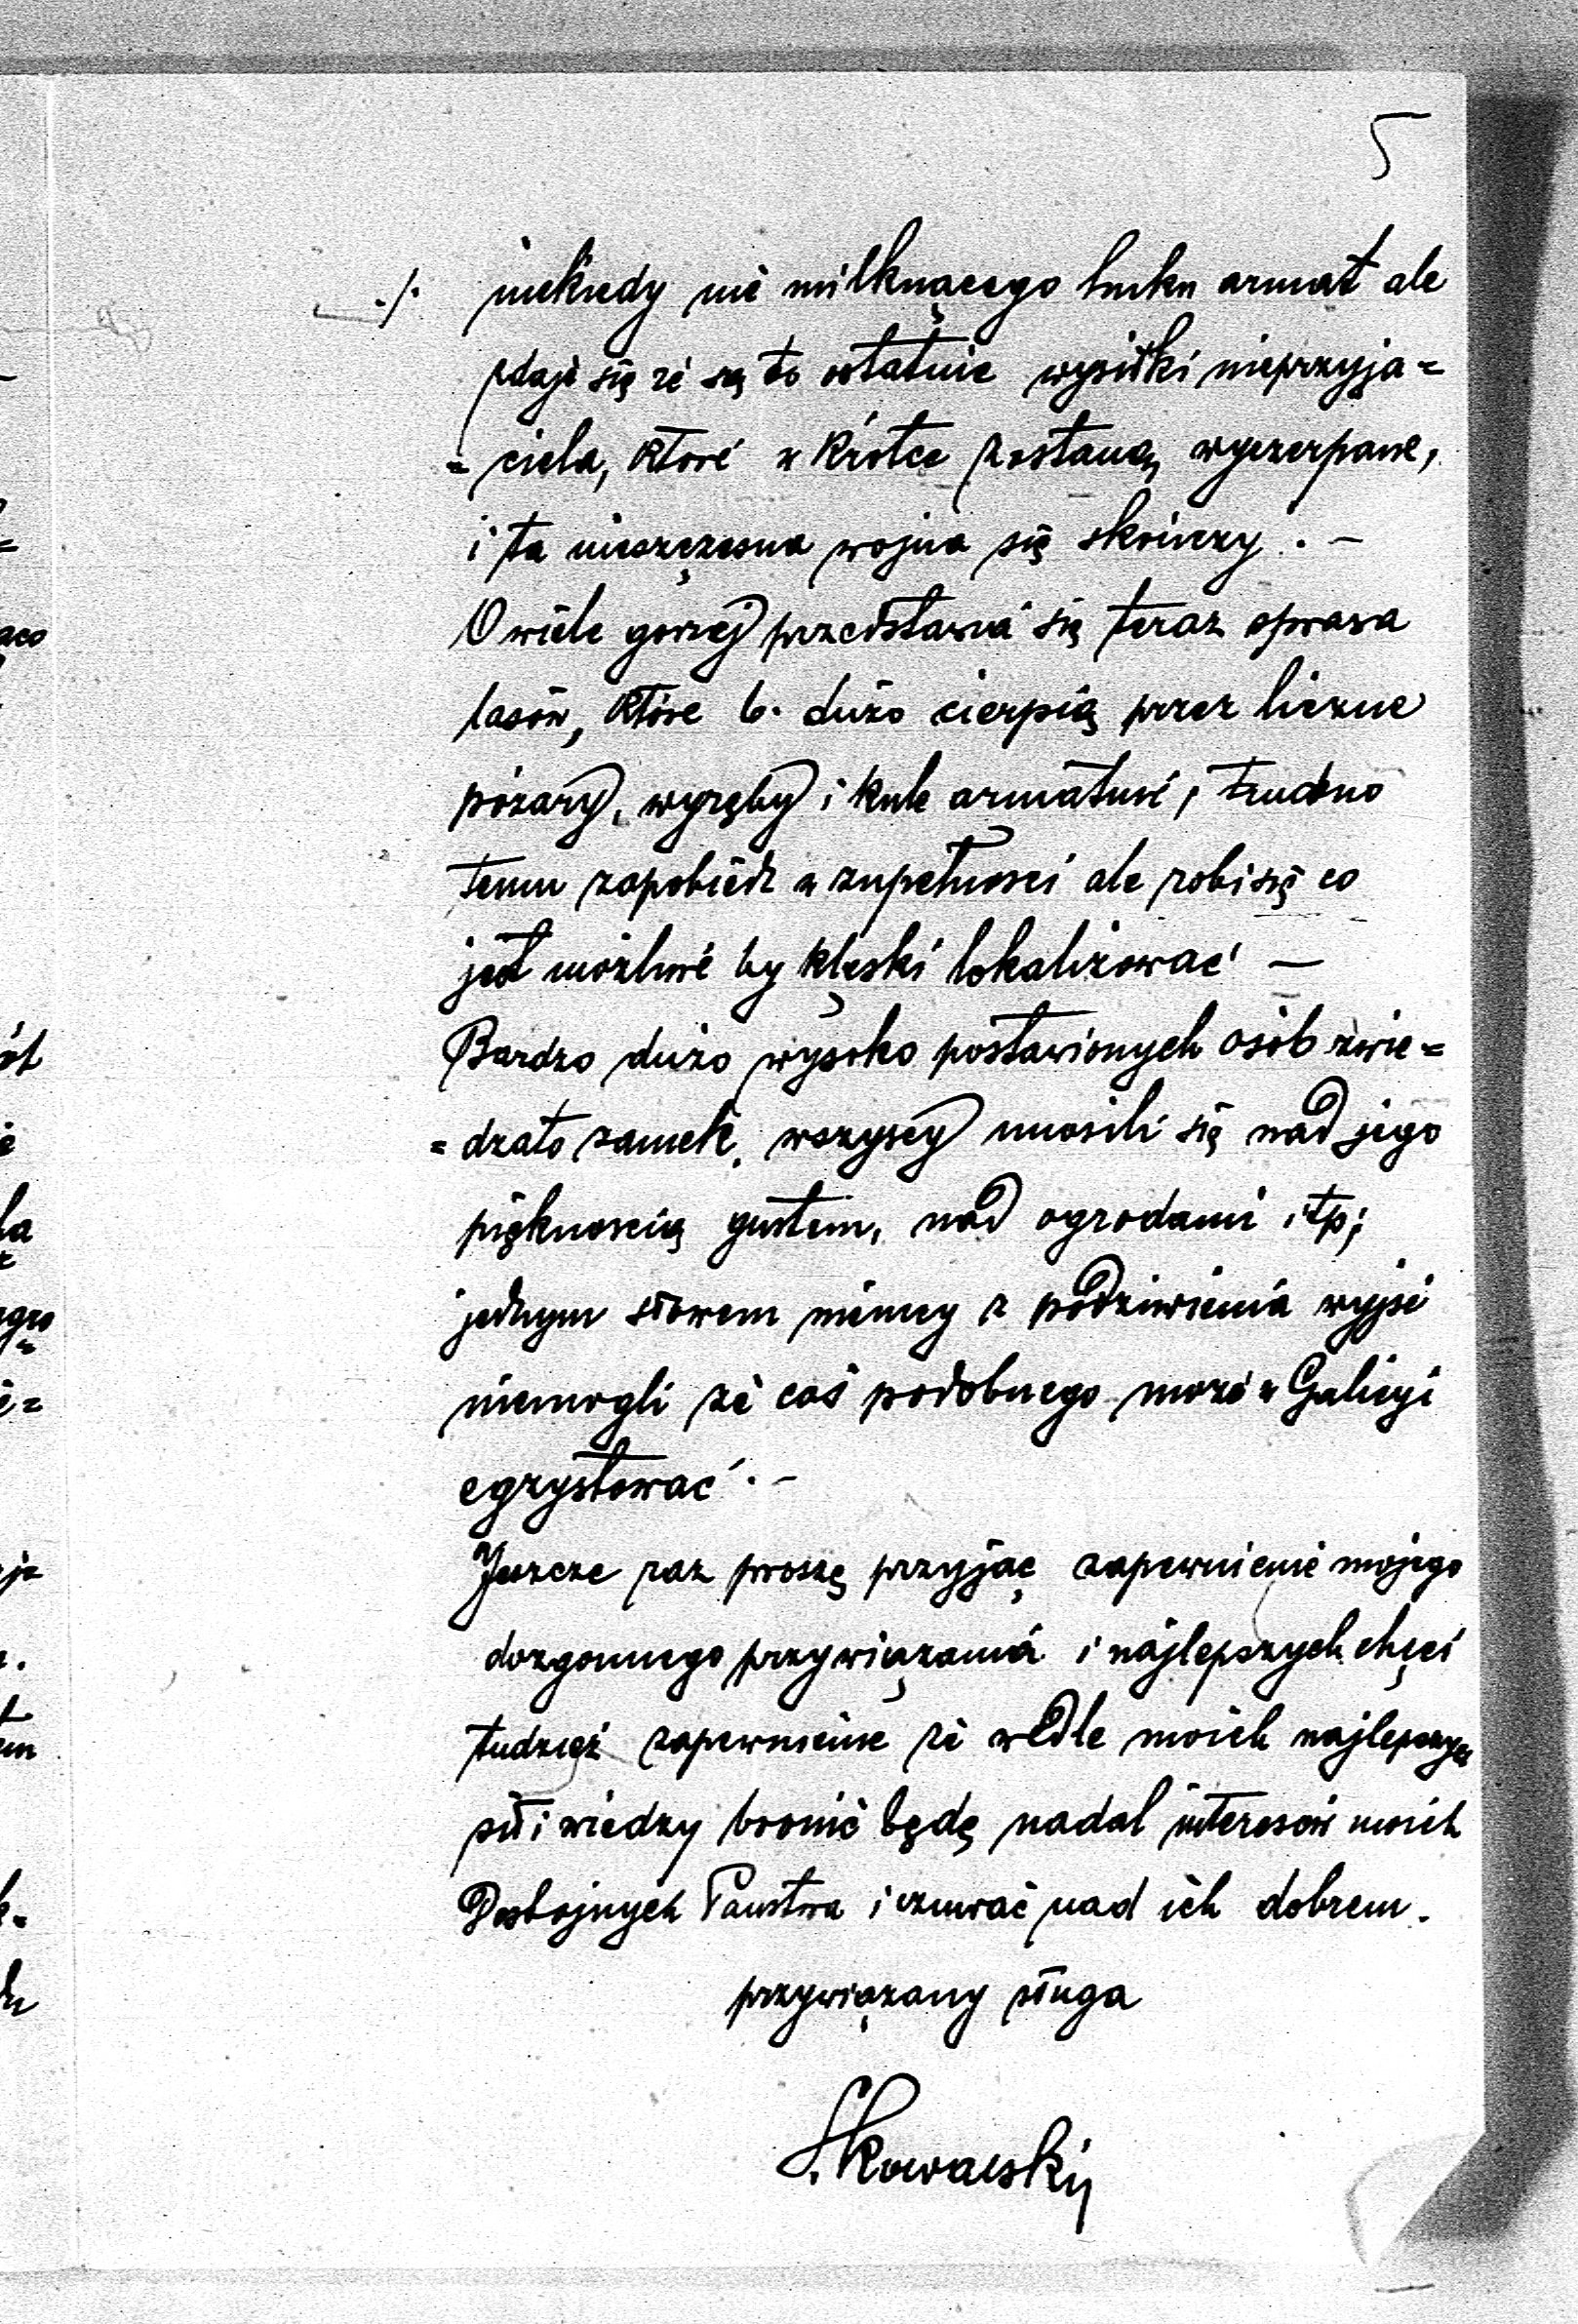 5
./. niekiedy nie milknącego huku armat ale
zdaje się że są to ostatnie wysiłki nieprzyja=
=ciela, które w krótce zostaną wyczerpane,
i ta nieszczęsna wojna się skończy. –
O wiele gorzej przedstawia się teraz sprawa
lasów, które b. dużo cierpią przez liczne
pożary, wyręby i kule armatnie, trudno
temu zapobiedz w zupełności ale robi się co
jest możliwe by klęski lokalizować –
Bardzo dużo wysoko postawionych osób zwie=
=dzało zamek, wszyscy unosili się nad jego
pięknością gustem, nad ogrodami itp;
jednym słowem niemcy z podziwienia wyjść
niemogli że coś podobnego może w Galicyi
egzystować. –
Jeszcze raz proszę przyjąć zapewnienie mojego
dozgonnego przywiązania i najlepszych chęci
tudzież zapewnienie że wedle moich najlepszych
sił i wiedzy bronić będę nadal interesów moich
Dostojnych Państwa i czuwać nad ich dobrem.
przywiązany sługa